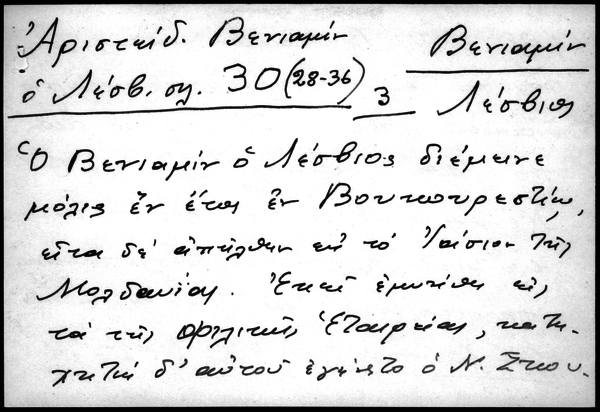 Ἀριστείδ. Βενιαμὶν
ὁ Λέσβ. σλ. 30 (28-36)
3
Βενιαμὶν
Λέσβιος
Ὁ Βενιαμὶν ὁ Λέσβιος διέμεινε
μόλις ἓν ἔτος ἐν Βουκουρεστίῳ,
εἶτα δὲ ἀπῆλθεν εἰς τὸ Ἰάσιον τῆς
Μολδαυίας. Ἐκεῖ ἐμυήθη εἰς
τὰ τῆς Φιλικῆς Ἑταιρείας, κατη-
χητὴς δ' αὐτοῦ ἐγένετο ὁ Ν. Σκου-